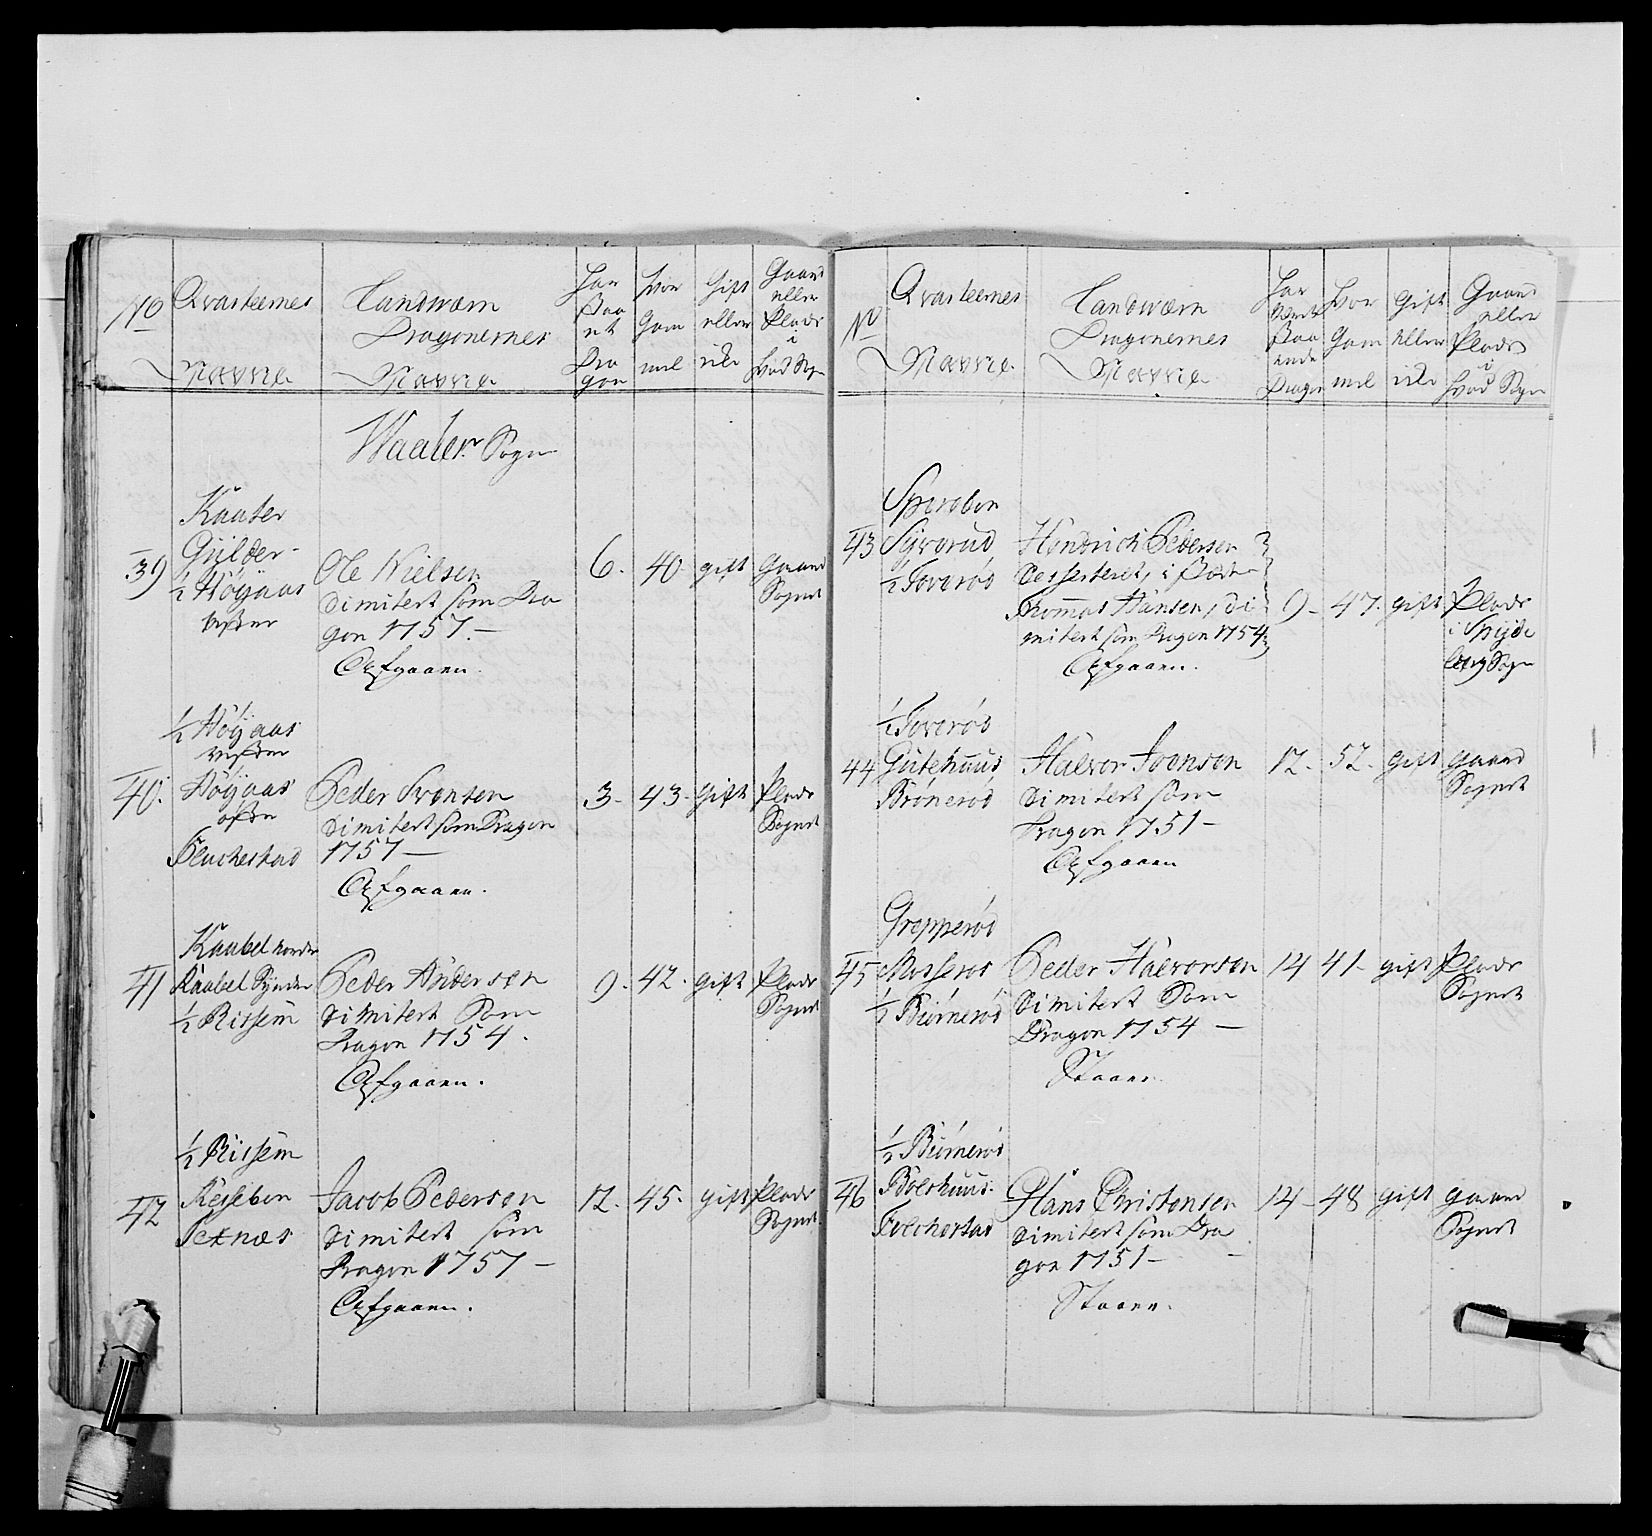 No
Qvarteernes
Navne
Landværn
Dragonernes
Navne
Har
staaet
Dragon
Hvor
Gam
mel
Gift
eller
ikke
Gaard
eller
Plads
i
hvad Sogn
Waaler Sogn
Kaater
Gylder
½ Höyaas
39
Ole Nielsen
dimitert som Dra
gon 1757.
Afgaaen.
6.
40
gift
gaard
Sognet
½ Höyaas
Höyaas
40.
Peder Svensen
dimitert som Dragon
1757
Afgaaen.
3.
43.
gift
Plads
Sognet
Kaabel norder
Kaabel Synder
½ Rissem
41
Peder Andersen
dimitert som
Dragon 1754.
Afgaaen.
9.
42.
gift
Plads
Sognet
½ Rissem
Texnæs
42
Jacob Pedersen
dimitert som
Dragon 1757
Afgaaen.
12.
45.
gift
Plads
Sognet
No
Qvarteernes
Navne.
Landværn
Dragonernes
Navne
Har
været
staa
ende
Dragon
Hvor
Gam
mel
Gift
eller
ikke
Gaard
eller
Plads
i
hvad Sogn
Sperebon
Syverud
½ Foverös
43
Hendrich Pedersen
desserteret, i stæden
Thommas Hansen, di
mitert som Dragon 1754
Afgaaen.
9
47.
gift
Plads
i Spyde
berg Sogn
½ Foverös
Gutehuus
Brönerod
44
Halvor Joensen
dimitert som
Dragon 1751
Afgaaen
12.
52.
gift
gaard
Sognet
Gropperöd
Mosseros
½ Biörneröd
45
Peder Halvorsen
dimitert som
Dragon 1754
Staaer
14
41
gift
Plads
Sognet
½ Biörneröd
Bolerhuus
Folchestad
46
Hans Christensen
dimitert som Dra
gon 1751
Staaer.
14
48
gift
gaard
Sognet